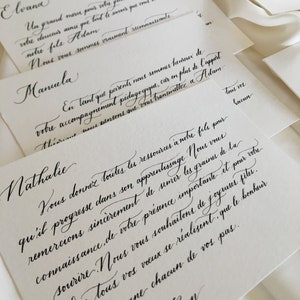 Elvana
Un grand merci pour votre
votre douceur ainsi que tout le
notre fils Adam.
Nous vous sommes vraiment reconnaissants.
Manuela
En tant que parents nous sommes heureux de
votre accompagnement pédagogique, car en plus de l'appétit
que vous transmettez à Adam
Nathalie
Vous donnez toutes les ressources à notre fils pour
qu'il progresse dans son apprentissage. Nous vous
remercions sincèrement de semer les graines de la
connaissance, de votre présence importante et pour votre
sourire. Nous vous souhaitons de joyeuses fêtes.
tous vos vœux se réalisent, que le bonheur
chacun de vos pas.